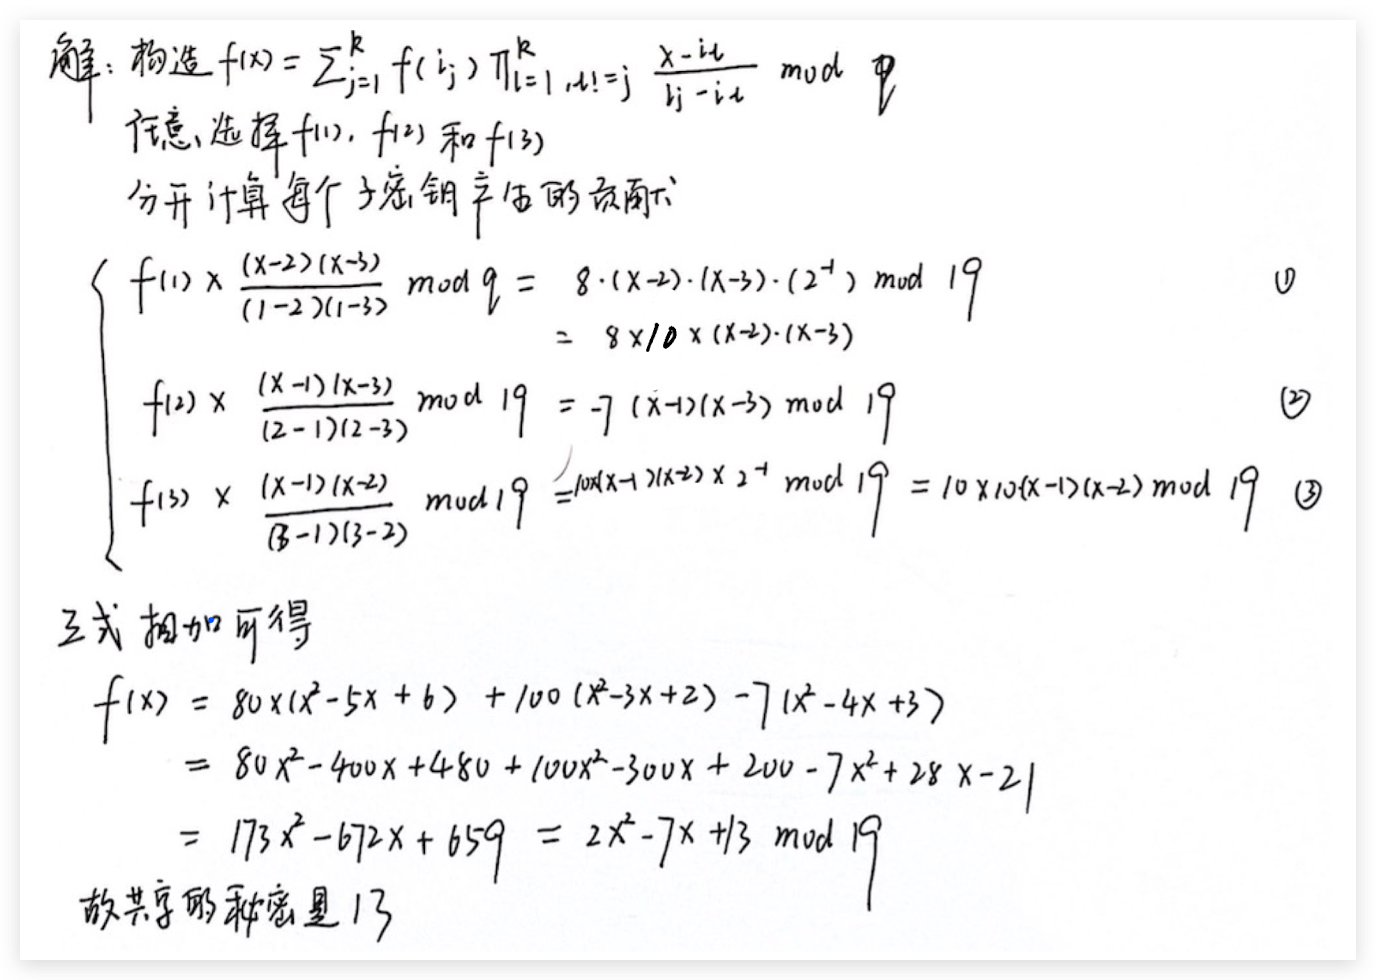 解：构造 f(x) = ∑_{j=1}^{k} f(i_j) ∏_{l=1, l!=j}^{k} \frac{x-i_l}{i_j-i_l} mod q
任意选择 f(1), f(2) 和 f(3)
分开计算每个子密钥产生的贡献
f(1) × \frac{(x-2)(x-3)}{(1-2)(1-3)} mod q = 8·(x-2)·(x-3)·(2^{-1}) mod 19 ①
= 8×10×(x-2)·(x-3)
f(2) × \frac{(x-1)(x-3)}{(2-1)(2-3)} mod 19 = -7 (x-1)(x-3) mod 19 ②
f(3) × \frac{(x-1)(x-2)}{(3-1)(3-2)} mod 19 = 10×(x-1)(x-2) × 2^{-1} mod 19 = 10×10(x-1)(x-2) mod 19 ③
三式相加可得
f(x) = 80×(x²-5x+6) + 100(x²-3x+2) - 7(x²-4x+3)
= 80x² - 400x + 480 + 100x² - 300x + 200 - 7x² + 28x - 21
= 173x² - 672x + 659 = 2x² - 7x + 13 mod 19
故共享的秘密是 13